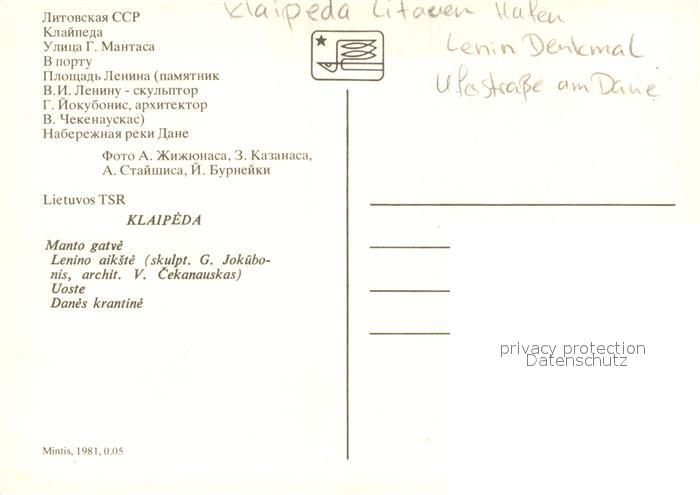 Klaipeda Litauen Hafen
Lenin Denkmal
Uferstraße am Dane
Литовская ССР
Клайпеда
Улица Г. Мантаса
В порту
Площадь Ленина (памятник
В.И. Ленину - скульптор
Г. Йокубонис, архитектор
В. Чекенаускас)
Набережная реки Дане
Фото А. Жижюнаса, З. Казанаса,
А. Стайшиса, Й. Бурнейки
Lietuvos TSR
KLAIPĖDA
Manto gatvė
Lenino aikštė (skulpt. G. Jokūbo-
nis, archit. V. Čekanauskas)
Uoste
Danės krantinė
privacy protection
Datenschutz
Mintis, 1981, 0.05